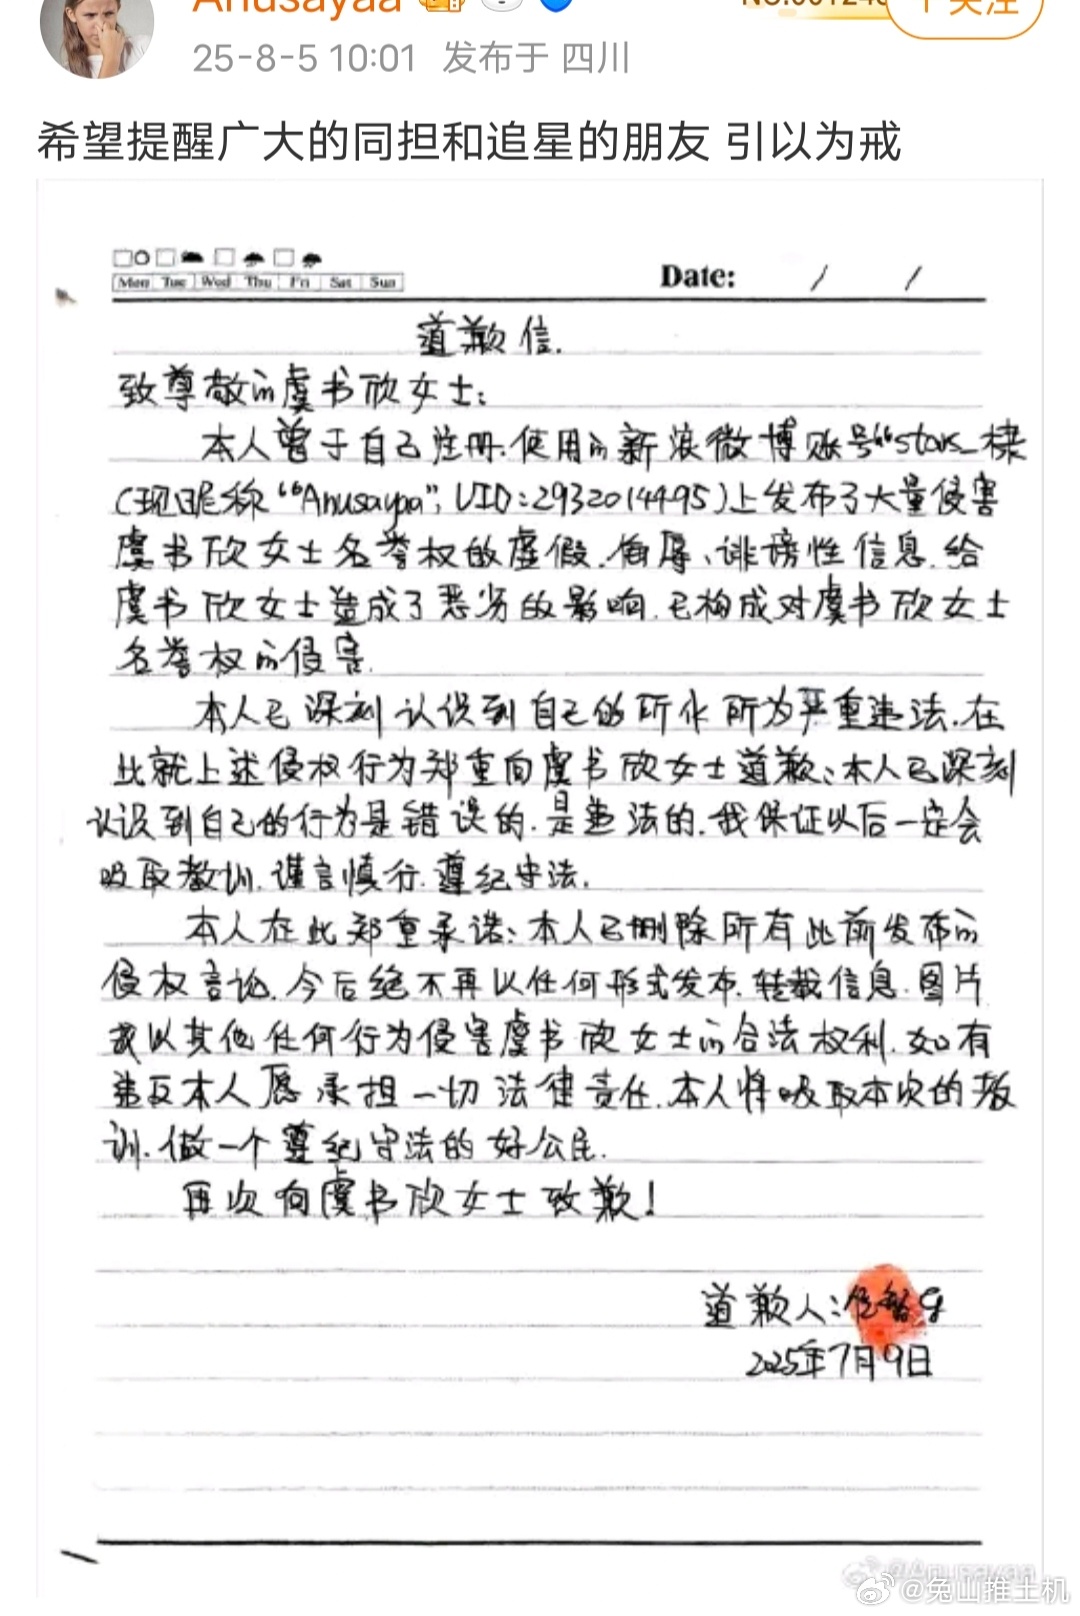 Anusayaa
25-8-5 10:01 发布于 四川
+关注
希望提醒广大的同担和追星的朋友 引以为戒
Mon Tue Wed Thu Fri Sat Sun
Date: / /
道歉信.
致尊敬的虞书欣女士:
本人曾于自己注册.使用的新浪微博账号“stars_棣
(现昵称“Anusayaa”, UID:2932014495)上发布了大量侵害
虞书欣女士名誉权的虚假.侮辱、诽谤性信息.给
虞书欣女士造成了恶劣的影响.已构成对虞书欣女士
名誉权的侵害.
本人已深刻认识到自己的所作所为严重违法.在
此就上述侵权行为郑重向虞书欣女士道歉:本人已深刻
认识到自己的行为是错误的.是违法的.我保证以后一定会
吸取教训.谨言慎行.遵纪守法.
本人在此郑重承诺:本人已删除所有此前发布的
侵权言论.今后绝不再以任何形式发布.转载信息.图片
或以其他任何行为侵害虞书欣女士的合法权利.如有
违反本人愿承担一切法律责任.本人将吸取本次的教
训.做一个遵纪守法的好公民.
再次向虞书欣女士致歉!
道歉人:
2025年7月9日
@Anusayaa
@兔山推土机